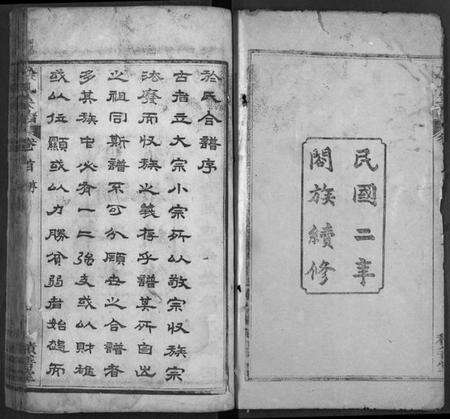 民國二年
闔族續修
於氏合譜序
古者立大宗小宗所以敬宗收族宗
法廢而收族之義存乎譜其所自出
之祖同斯譜不可分顧世之合譜者
多其族中必有一二強支或以財雄
或以位顯或以力勝貧弱者始趨而
卷首